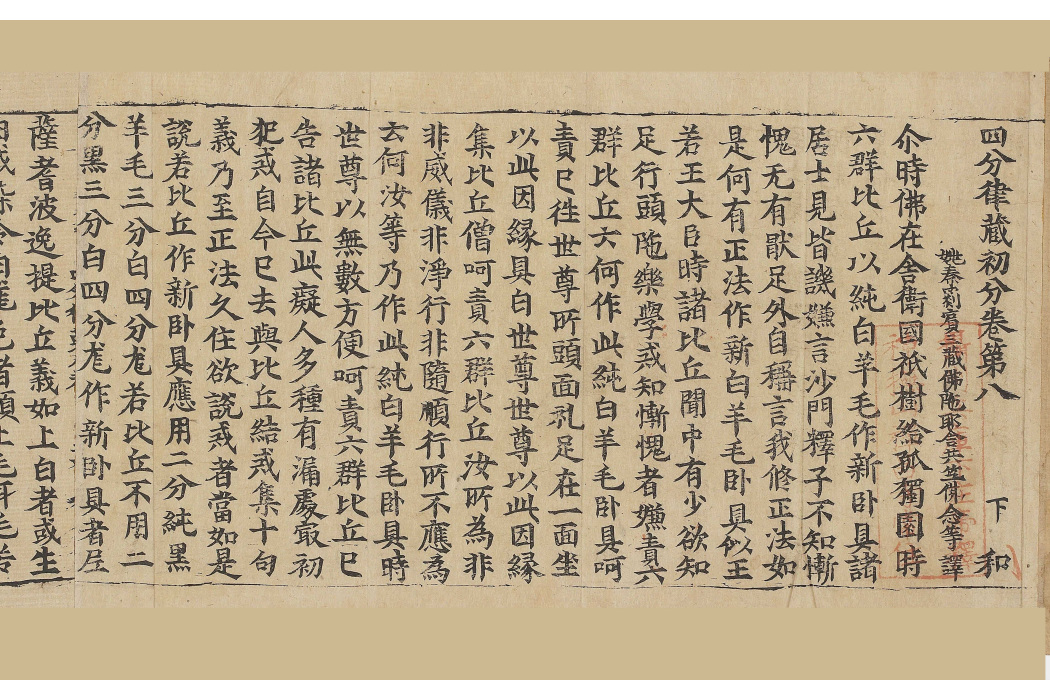 四分律藏初分卷第八 下 和
姚秦罽賓三藏佛陁耶舍共竺佛念等譯
尒時佛在舍衛國祇樹給孤獨園時
六群比丘以純白羊毛作新卧具諸
居士見皆譏嫌言沙門釋子不知慚
愧无有猒足外自稱言我修正法如
是何有正法作新白羊毛卧具似王
若王大臣時諸比丘聞中有少欲知
足行頭陁樂學戒知慚愧者嫌責六
群比丘云何作此純白羊毛卧具呵
責已往世尊所頭面礼足在一面坐
以此因緣具白世尊世尊以此因緣
集比丘僧呵責六群比丘汝所為非
非威儀非淨行非隨順行所不應為
云何汝等乃作此純白羊毛卧具時
世尊以無數方便呵責六群比丘已
告諸比丘此癡人多種有漏處最初
犯戒自今已去與比丘結戒集十句
義乃至正法久住欲說戒者當如是
說若比丘作新卧具應用二分純黑
羊毛三分白四分尨若比丘不用二
分黑三分白四分尨作新卧具者尼
薩耆波逸提比丘義如上白者或生